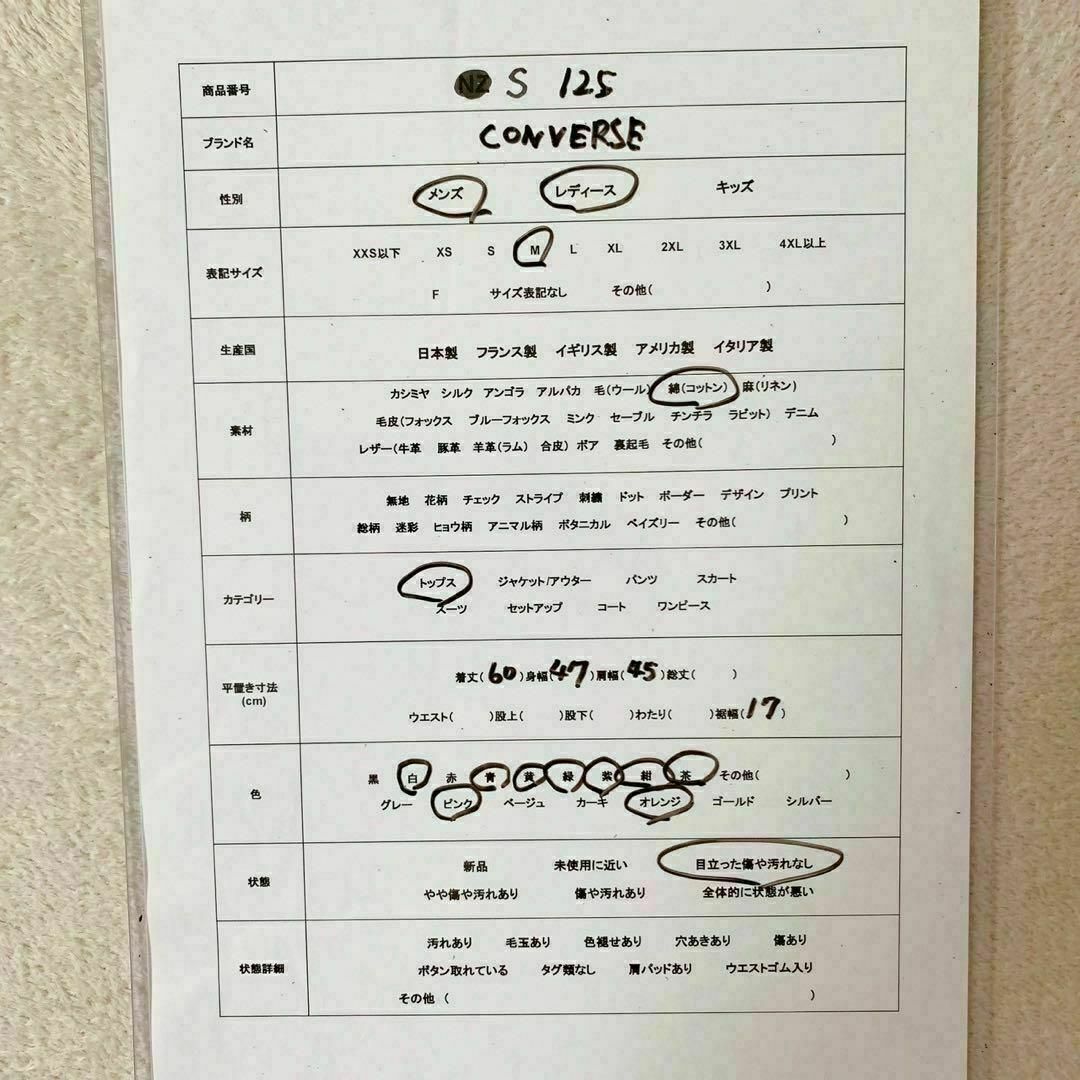 商品番号 NZ S 125
ブランド名 CONVERSE
性別 メンズ レディース キッズ
表記サイズ
XXS以下 XS S M L XL 2XL 3XL 4XL以上
F サイズ表記なし その他( )
生産国 日本製 フランス製 イギリス製 アメリカ製 イタリア製
素材
カシミヤ シルク アンゴラ アルパカ 毛(ウール) 綿(コットン) 麻(リネン)
毛皮(フォックス ブルーフォックス ミンク セーブル チンチラ ラビット) デニム
レザー(牛革 豚革 羊革(ラム) 合皮) ボア 裏起毛 その他( )
柄
無地 花柄 チェック ストライプ 刺繍 ドット ボーダー デザイン プリント
総柄 迷彩 ヒョウ柄 アニマル柄 ボタニカル ペイズリー その他( )
カテゴリー
トップス ジャケット/アウター パンツ スカート
スーツ セットアップ コート ワンピース
平置き寸法
(cm)
着丈(60)身幅(47)肩幅(45)総丈( )
ウエスト( )股上( )股下( )わたり( )裾幅(17)
色
黒 白 赤 青 黄 緑 紫 紺 茶 その他( )
グレー ピンク ベージュ カーキ オレンジ ゴールド シルバー
状態
新品 未使用に近い 目立った傷や汚れなし
やや傷や汚れあり 傷や汚れあり 全体的に状態が悪い
状態詳細
汚れあり 毛玉あり 色褪せあり 穴あきあり 傷あり
ボタン取れている タグ類なし 肩パッドあり ウエストゴム入り
その他 ( )